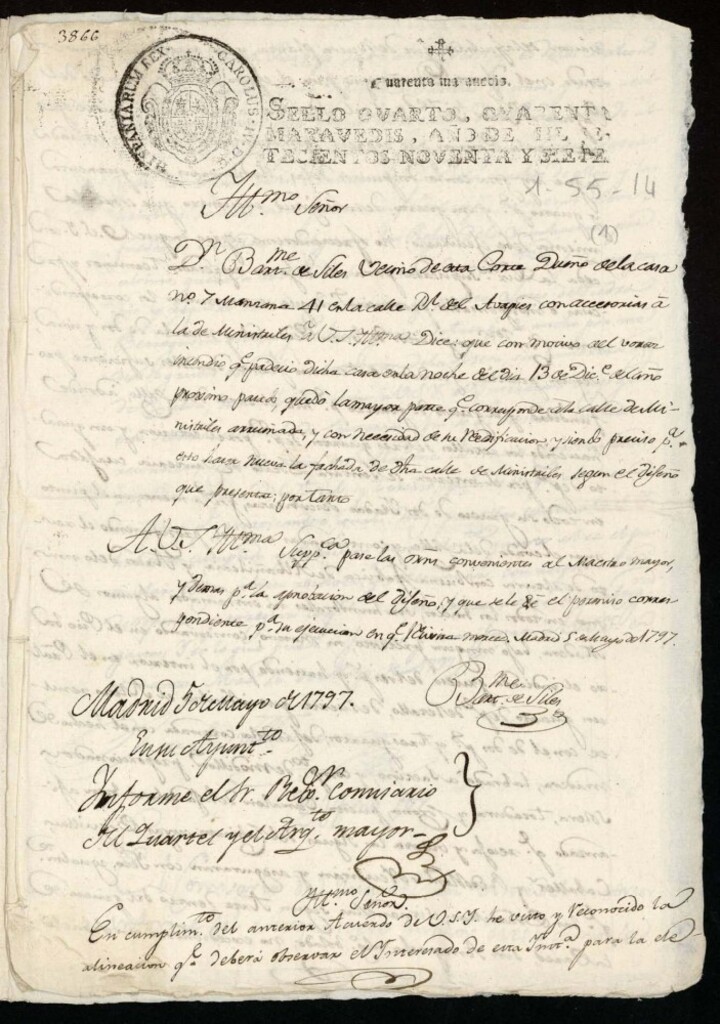 3866
HISPANIARUM REX. CAROLUS IV D. G.
Quarenta maravedis.
SELLO QVARTO, QVARENTA
MARAVEDIS, AÑO DE MIL SE-
TECIENTOS NOVENTA Y SIETE.
1-55-14
Yll.mo Señor
(1)
D.n Bart.me de Siles Vecino de esta Corte Dueño de la casa
n.o 7 Manzana 41 en la calle R.l del Avapies con accesorias á
la de Ministriles á V.S. Yll.ma Dice: que con motivo del voraz
incendio q.e padecio dicha casa en la noche del dia 13 de Dic.e del año
proximo pasado, quedó la mayor parte q.e corresponde à la calle de Mi-
nistriles arruinada, y con necesidad de su redificacion, y siendo preciso p.a
esto hacer nueva la fachada de dha calle de Ministriles segun el diseño
que presenta; por tanto
A. V. S. Yll.ma Supp.ca pase las orñs convenientes al Maestro mayor,
y demas p.a la aprovacion del diseño, y que se le dé el permiso corres
pondiente p.a su ejecucion en q.e recivira merced. Madrid 5 de Mayo de 1797.
Bart.me de Siles
Madrid 5 de Mayo de 1797.
En su Ayunt.to
Informe el Sr. Reg.or Comisario
del Quartel y el Arq.to mayor
Yll.mo Señor
En cumplim.to del anterior Acuerdo de V.S.Y. he visto y reconocido la
alineacion q.e deberá observar el Interesado de esta Inst.a para la de